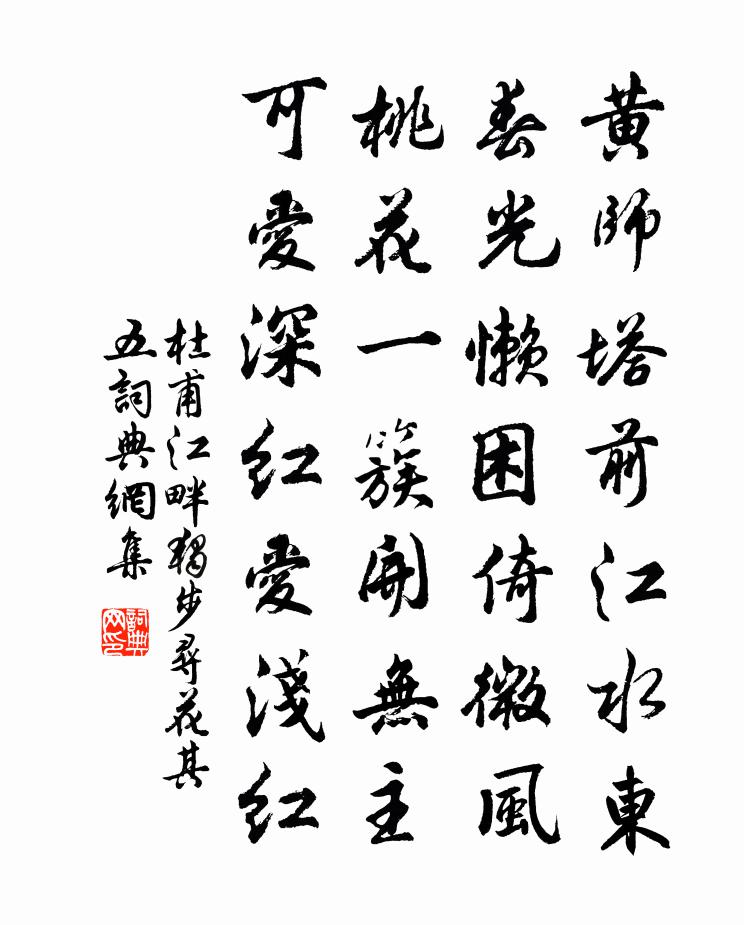 黃師塔前江水東
春光懶困倚微風
桃花一簇開無主
可愛深紅愛淺紅
杜甫江畔獨步尋花其
五詞典網集
詞典網印